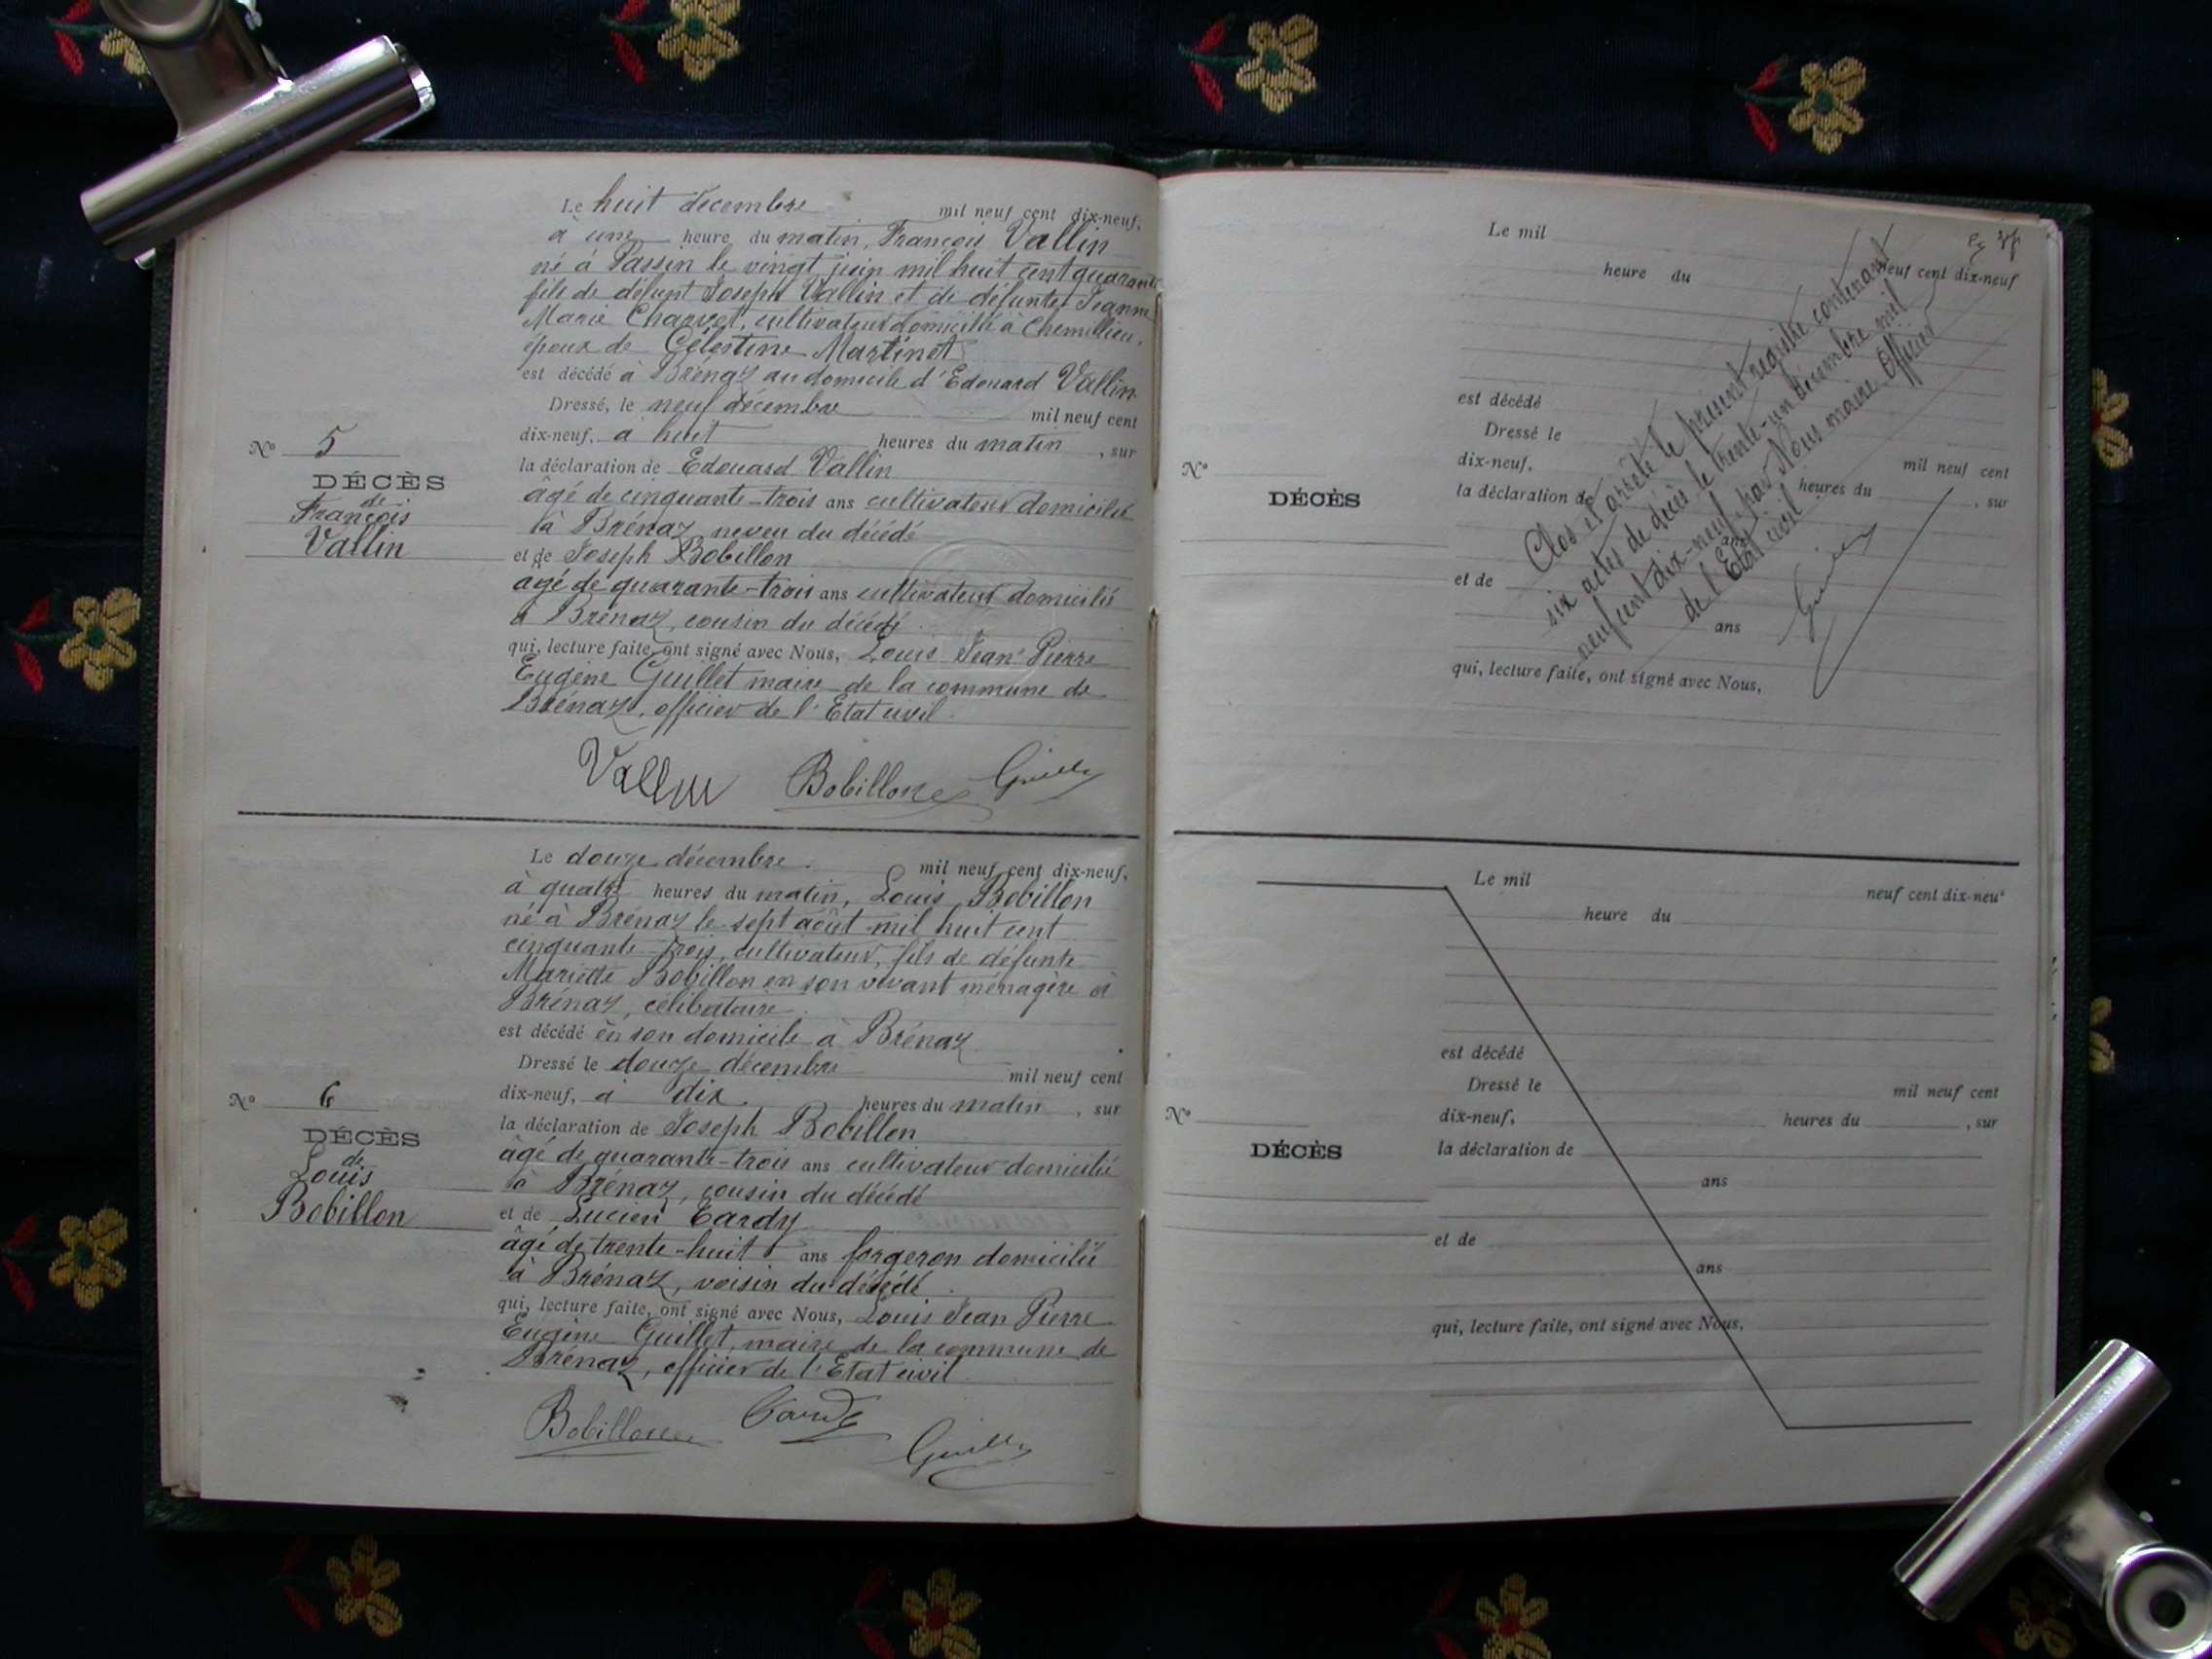 Le huit décembre mil neuf cent dix-neuf,
à une heure du matin, François Vallin
né à Passin le vingt juin mil huit cent quarante
fils de défunt Joseph Vallin et de défunte Jeanne
Marie Charvet, cultivateur domicilié à Chemillieu,
époux de Célestine Martinet
est décédé à Brénaz au domicile d'Edouard Vallin
Dressé, le neuf décembre mil neuf cent
dix-neuf, à huit heures du matin, sur
la déclaration de Edouard Vallin
âgé de cinquante-trois ans cultivateur domicilié
à Brénaz neveu du décédé
et de Joseph Bobillon
âgé de quarante-trois ans cultivateur domicilié
à Brénaz, cousin du décédé
qui, lecture faite, ont signé avec Nous, Louis Jean Pierre
Eugène Guillet maire de la commune de
Brénaz, officier de l'Etat civil.
Vallin Bobillon Guillet
N° 5
DÉCÈS
de
François
Vallin
Le douze décembre. mil neuf cent dix-neuf,
à quatre heures du matin, Louis Bobillon
né à Brénaz le sept août mil huit cent
cinquante-trois, cultivateur, fils de défunte
Mariette Bobillon en son vivant ménagère à
Brénaz, célibataire.
est décédé en son domicile à Brénaz
Dressé le douze décembre mil neuf cent
dix-neuf, à dix. heures du matin, sur
la déclaration de Joseph Bobillon
âgé de quarante-trois ans cultivateur domicilié
à Brénaz, cousin du décédé
et de Lucien Tardy
âgé de trente-huit ans forgeron domicilié
à Brénaz, voisin du décédé.
qui, lecture faite, ont signé avec Nous, Louis Jean Pierre
Eugène Guillet, maire de la commune de
Brénaz, officier de l'Etat civil
Bobillon Tardy Guillet
N° 6
DÉCÈS
de
Louis
Bobillon
Le mil
neuf cent dix-neuf
heure du
est décédé
Dressé le
mil neuf cent
dix-neuf,
heures du , sur
la déclaration de
ans
et de
ans
qui, lecture faite, ont signé avec Nous,
N°
DÉCÈS
Clos et arrêté le présent registre contenant
six actes de décès le trente-un décembre mil
neuf cent dix-neuf par Nous maire Officier
de l'Etat civil
Guillet
Le mil
neuf cent dix-neuf
heure du
est décédé
Dressé le mil neuf cent
dix-neuf, heures du , sur
la déclaration de
ans
et de
ans
qui, lecture faite, ont signé avec Nous,
N°
DÉCÈS